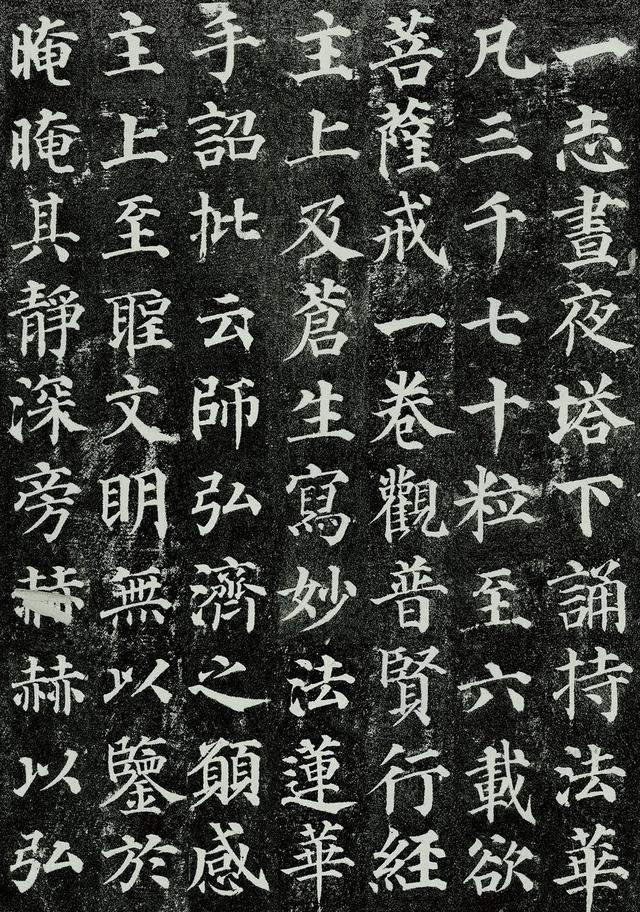 一志晝夜塔下誦持法華
凡三千七十粒至六載欲
菩薩戒一卷觀普賢行經
主上及蒼生寫妙法蓮華
手詔批云師弘濟之願感
主上至聖文明無以鑒於
晻晻其靜深旁赫赫以弘